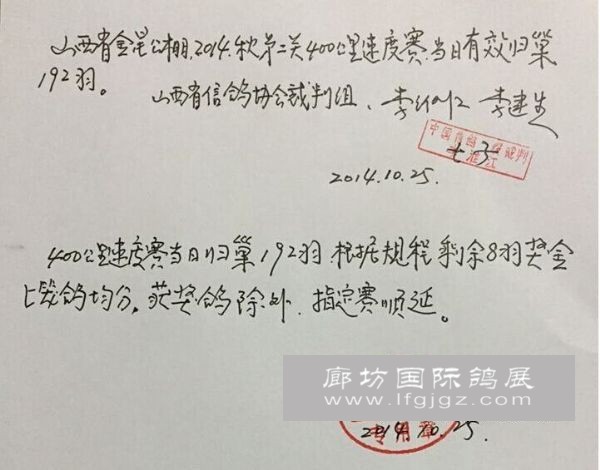 山西省金昆公棚2014.秋第二关400公里速度赛.当日有效归巢
192羽。
山西省信鸽协会裁判组、李 李建生
中国信鸽 级裁判
2014.10.25.
400公里速度赛当日归巢192羽 根据规程 剩余8羽奖金
上笼鸽均分,获奖鸽除外.指定赛顺延。
廊坊国际鸽展
www.lfgjgz.com
专用章
2014.10.25.